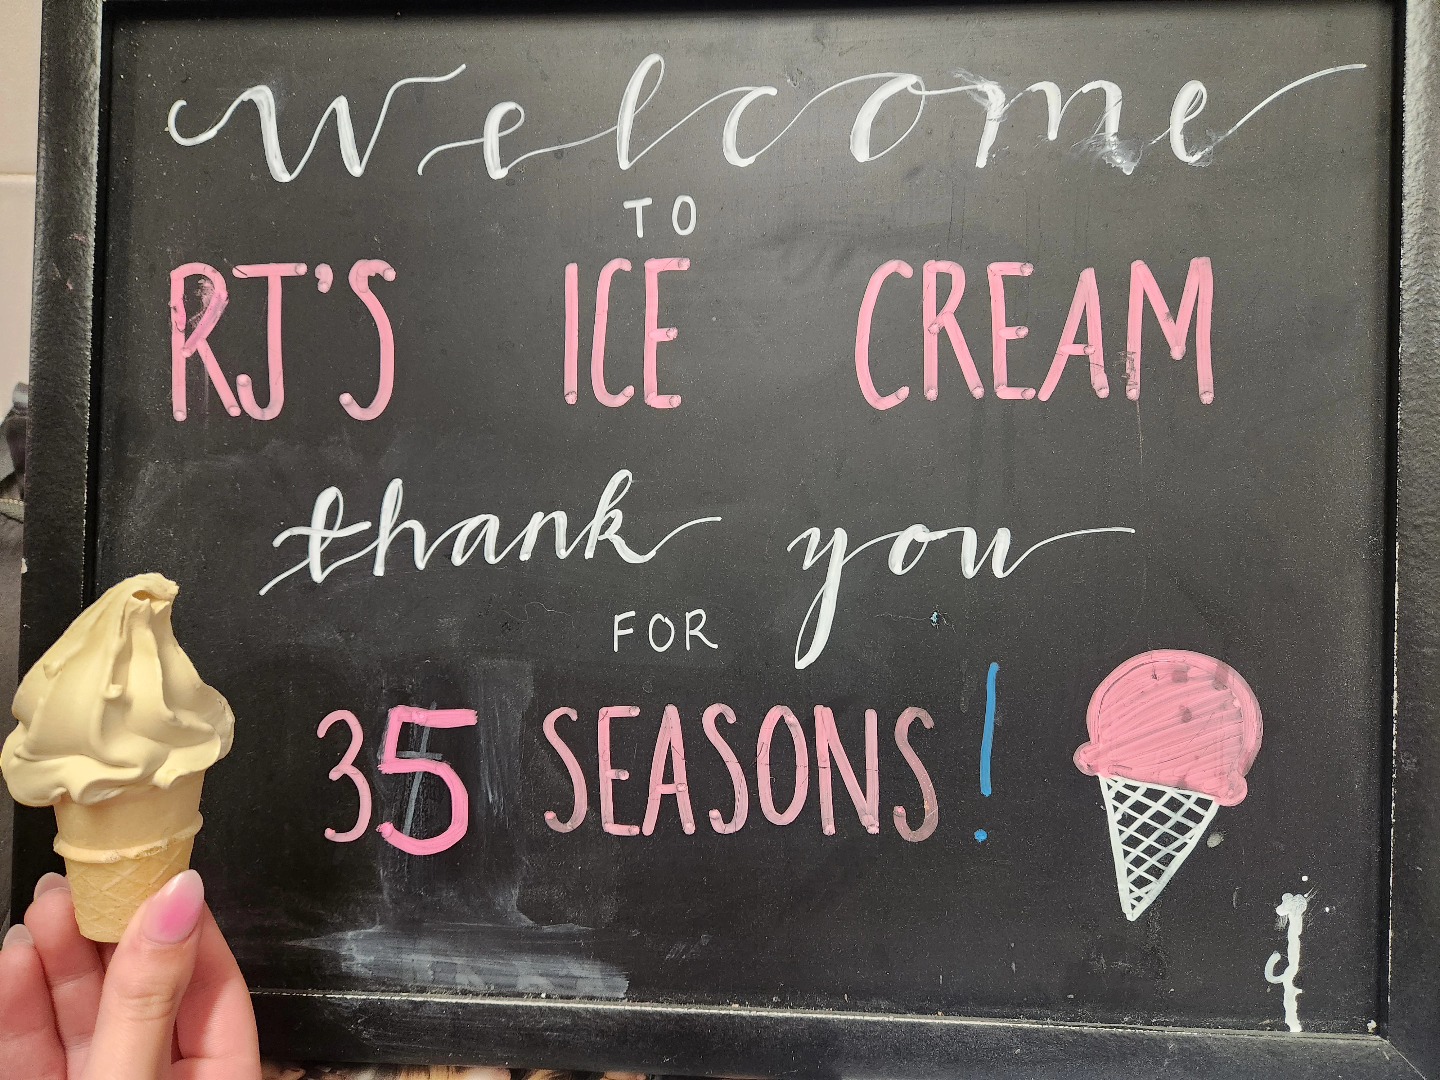 welcome
TO
RJ'S ICE CREAM
thank you
FOR
35 SEASONS!